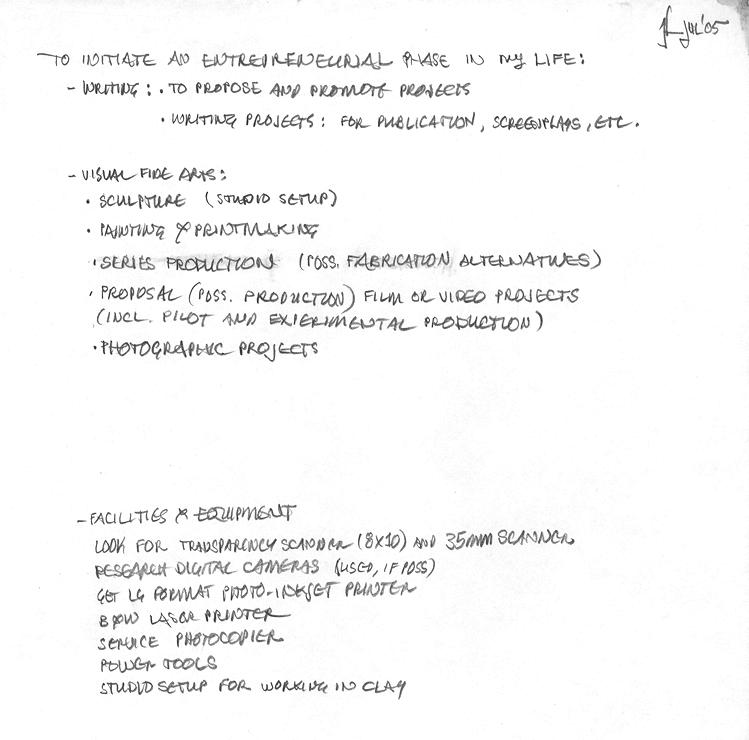 JUL '05
TO INITIATE AN ENTREPRENEURIAL PHASE IN MY LIFE:
- WRITING: • TO PROPOSE AND PROMOTE PROJECTS
• WRITING PROJECTS: FOR PUBLICATION, SCREENPLAYS, ETC.
- VISUAL FINE ARTS:
• SCULPTURE (STUDIO SETUP)
• PAINTING & PRINTMAKING
• SERIES PRODUCTION (POSS. FABRICATION ALTERNATIVES)
• PROPOSAL (POSS. PRODUCTION) FILM OR VIDEO PROJECTS
(INCL. PILOT AND EXPERIMENTAL PRODUCTION)
• PHOTOGRAPHIC PROJECTS
- FACILITIES & EQUIPMENT
LOOK FOR TRANSPARENCY SCANNER (8X10) AND 35MM SCANNER
RESEARCH DIGITAL CAMERAS (USED, IF POSS)
GET LG FORMAT PHOTO-INKJET PRINTER
B&W LASER PRINTER
SERVICE PHOTOCOPIER
POWER TOOLS
STUDIO SETUP FOR WORKING IN CLAY